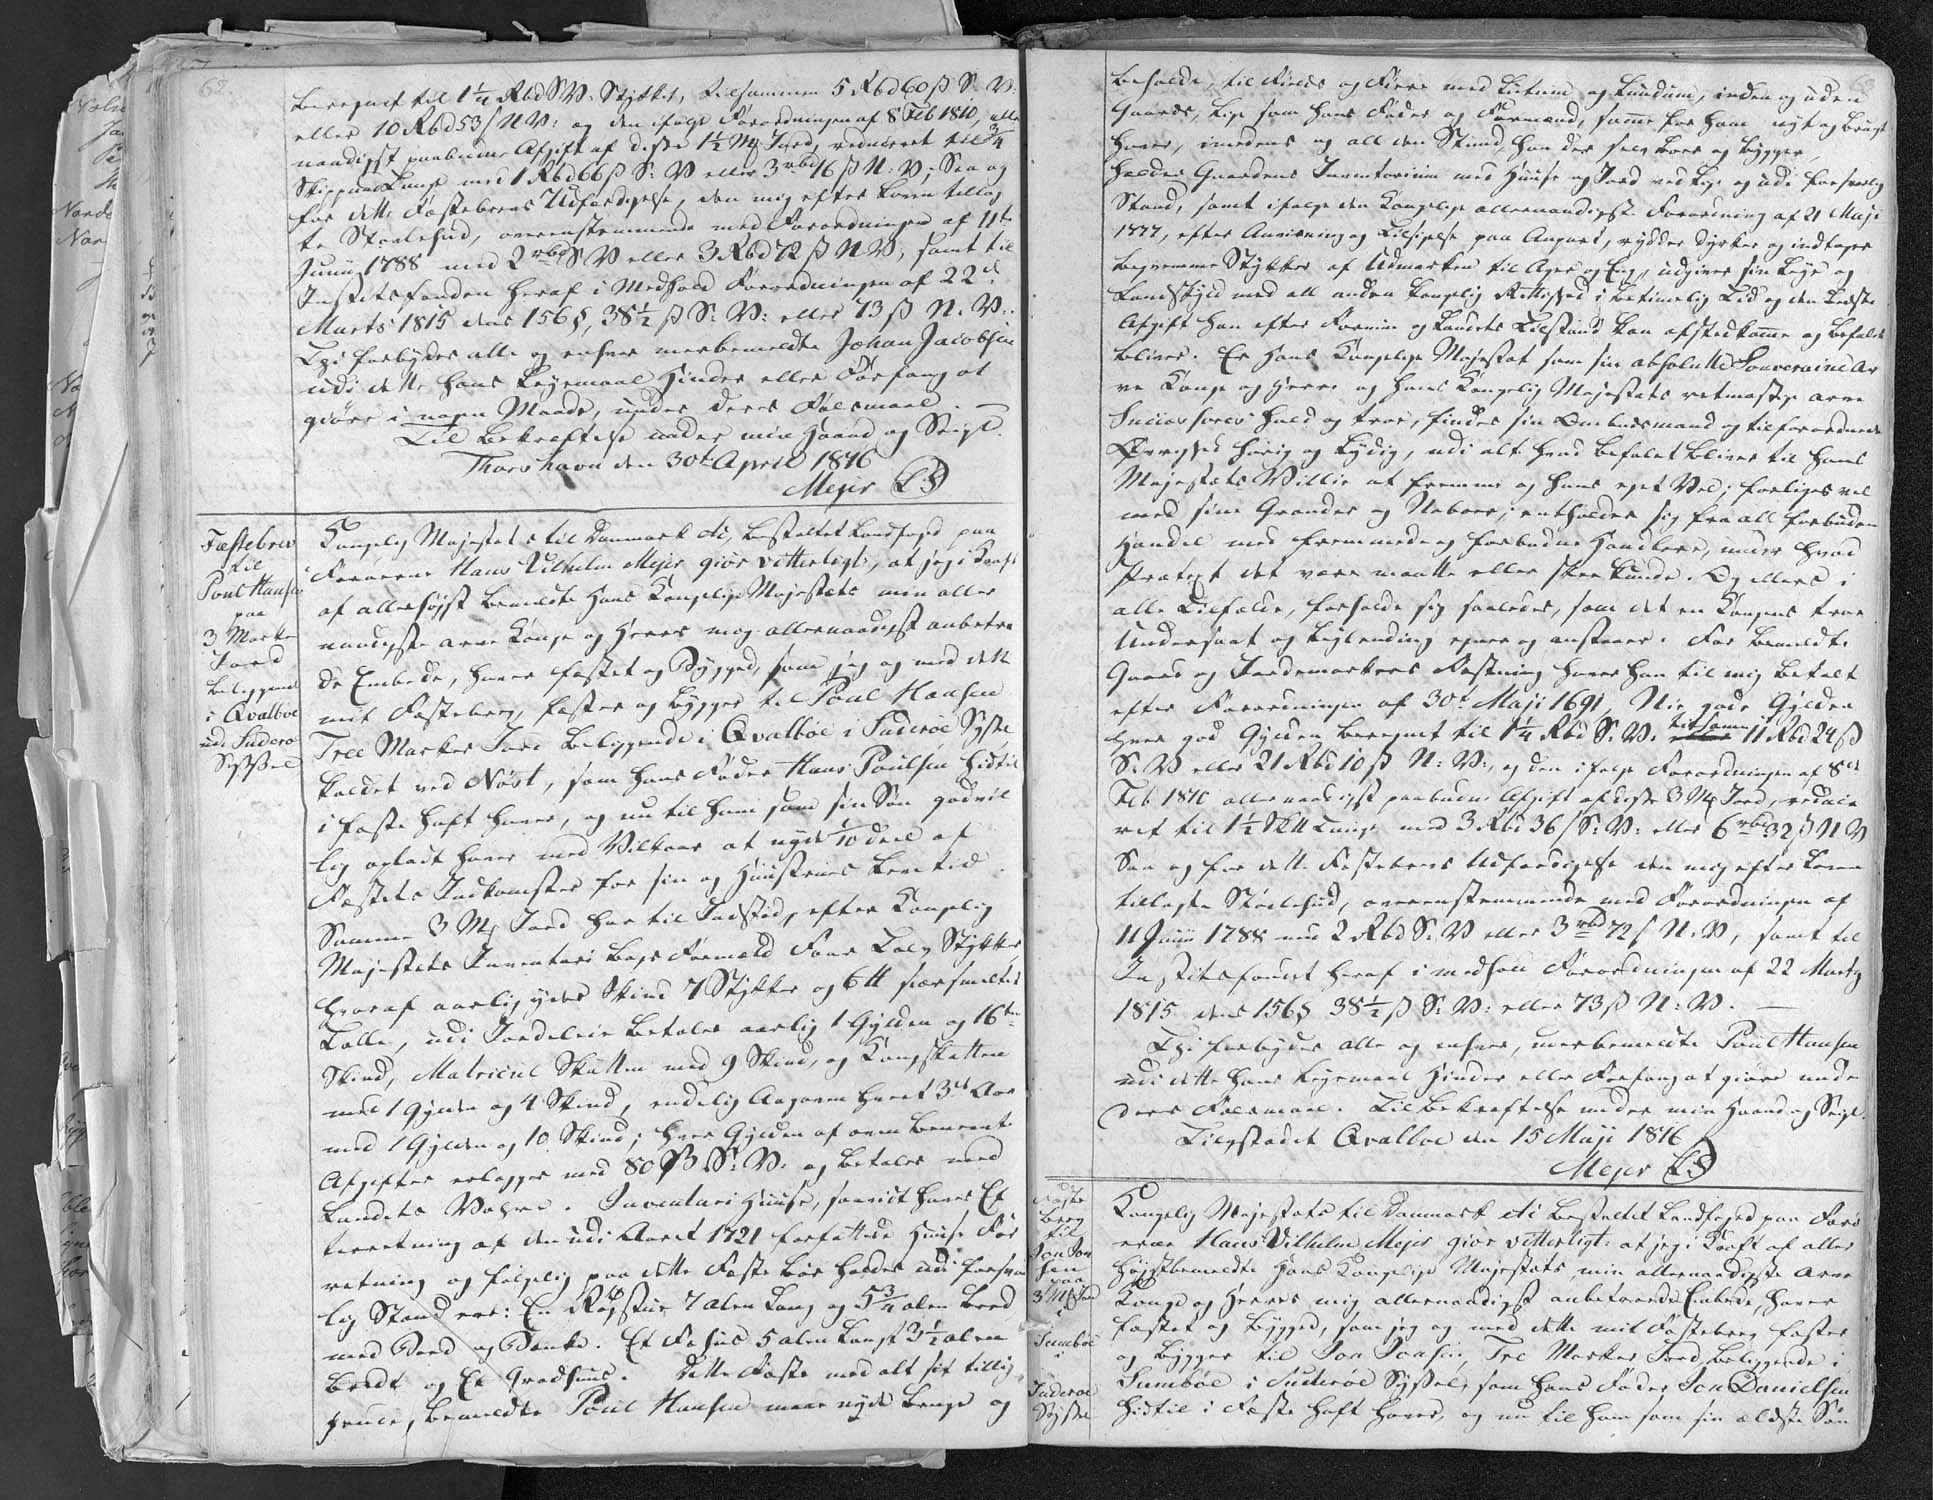 62.
beregnet til 1 1/4 Rbd S V. Stykket, tilsammen 5 Rbd 60 ß S. V.
eller 10 Rbd 53 ß N V: og den ifølge Forordningen af 8 Feb 1810, aller
naadigst paabudne Afgift af disse 1 1/2 Mk Jord, reduceret til 3/4
Skippund Tunge med 1 Rbd 66 ß S: V eller 3 rbd 16 ß N: V; Saa og
for dette Fæstebrevs Udfærdigelse, den mig efter Loven tillag
te Stavlehud, overensstemmende med Forordningen af 11te
Junii 1788 med 2 rbd S V eller 3 Rbd 72 ß N V, samt til
Justitsfonden heraf i Medhold Forordningen af 22d
Marts 1815 dens 156 §, 38 1/2 ß S: V: eller 73 ß N. V:.
Thi forbydes alle og enhver merbemeldte Johan Jacobsen
udi dette hans Leyemaal Hinder eller Forfang at
giøre i nogen Maade, under deres Falsmaal. —
Til Bekræftelse under min Haand og Seigl.
Thorshavn den 30te April 1816
Mejer (LS)
Fæstebrev
til
Poul Hansen
paa
3 Marker
Jord
beliggende
i Qvalboe
udi Suderø
Syssel
Kongelig Majestæts til Danmark etc, bestaltet Landfoged paa
Færøerne Hans Vilhelm Mejer giør vitterligt, at jeg i Kraft
af allerhøjst bemeldte Hans Kongelige Majestæts min aller
naadigste arve Konge og Herres mig allernaadigst anbetroe
de Embede, haver fæstet og Bygged, som jeg og med dette
mit Fæstebrev, fæster og bygger til Poul Hansen
Tree Marker Jord beliggende i Qvalböe i Suderöe Syssel
kaldet ved Nøst, som hans Fader Hans Poulsen hidtil
i Fæste haft haver, og nu til ham som sin Søn godvil
lig opladt haver med Vilkaar at nyde 1/10 deel af
Fæstets Indkomster for sin og Hustrues Levetid.
Samme 3 Mk Jord har til Indstød, efter Kongelig
Majestæts Inventarii Bogs Formeld Faar Tolv Stykker
hvoraf aarlig ydes Skind 7 Stykker og 6 tt siersmeltet
Talle, udi Jordeleie betales aarlig 1 Gylden og 16ten
Skind, Matricul Skatten med 9 Skind, og Kongskatten
med 1 Gylden og 4 Skind, endelig Aagoven hvert 3de Aar
med 1 Gylden og 10 Skind; hver Gylden af oven benevnte
Afgifter erlægges med 80 ß S: V. og betales med
Landets Vahre. Inventarii Huuse, saavidt haves Ef
terretning af den udi Aaret 1721 forfattede Huuse For
retning og følgelig paa dette Fæste bør holdes udi forsvar
lig Stand ere: En Røgstue 7 alen Lang og 5 3/4 alen breed
med Bord og Bænke. Et Fæhus 5 alen Langt 3 1/2 alen
bredt og Et Gradhuus. Dette Fæste med alt sit tillig
gende, bemeldte Poul Hansen maae nyde bruge og
beholde, til Fields og Fiære med Lutum og Lundum, inden og uden
Gaards, lige som hans Fader og Formænd, samme før ham nyt og brugt
haver, imedens og all den Stund, han der selv boer og bygger,
holder Gaardens Inventarium med Huuse og Jord ved lige og udi forsvarlig
Stand, samt ifølge den Kongelige allernaadigste Forordning af 21 Maji
1777, efter Anvisning og Tilsigelse paa Augvert, rydder dyrker og indtager
beqvemme Stykker af Udmarken til Ager og Eng, udgiver sin Leye og
Landskyld med all anden kongelig Rettighed i betimelig Tid og den bedste
Afgift han efter Formue og Landets Tilstand kan afstedkomme og befalet
bliver. Er Hans Kongelige Majestæt som sin absolutte Souveraine Ar
ve Konge og Herre og Hans Kongelig Majestæts retmæssige arve
Successores huld og troe, findes sin Ombudsmand og tilforordnede
Øvrighed hørig og lydig, udi alt hvad befalet bliver til Hans
Majestæts Villie at fremme og hans eget Vel; forliges vel
med sine Grander og Naboer; entholder sig fra all forbuden
Handel med fremmede og forbudne Handlere, under hvad
Prætext det være maatte eller skee kunde. Og ellers i
alle Tilfælde, forholde sig saaledes, som det en Kongens troe
Undersaat og Leylending egner og anstaaer. For bemeldte
Gaard og Jordemarkers Fæstning haver han til mig betalt
efter Forordningen af 30te Maji 1691, Nie gode Gylden
hver god Gylden beregnet til 1 1/4 Rbd S: V: tilsamen 11 Rbd 24 ß
S: V eller 21 Rbd 10 ß N: V:, og den ifølge Forordningen af 8de
Feb 1810 allernaadigst paabudne Afgift af disse 3 Mk Jord, reduce
ret til 1 1/2 Skttunge med 3 Rbd 36 ß S: V: eller 6 rbd 32 ß N V
Saa og for dette Fæstebrevs Udfærdigelse den mig efter Loven
tillagte Støvlehud, overensstemmende med Forordningen af
11 Junii 1788 med 2 Rbd S: V eller 3 rbd 72 ß N: V, samt til
Justitsfondet heraf i medhold Forordningen af 22 Marty
1815 dens 156 § 38 1/2 ß S: V: eller 73 ß N: V. —
Thi forbydes alle og enhver, merbemeldte Poul Hansen
udi dette hans Leyemaal Hinder eller Forfang at giøre under
deres Falsmaal. Til Bekræftelse under min Haand og Seigl.
Tingstedet Qvalboe den 15 Maji 1816
Mejer (LS)
Fæste
brev
til
Jon Jon
sen
paa
3 Mk Jord
i
Sumböe
i
Suderoe
Syssel
Kongelig Majestæts til Danmark etc bestaltet Landfoged paa Færø
erne Hans Vilhelm Mejer giør vitterligt: at jeg i Kraft af aller
høystbemeldte Hans Kongelige Majestæts min allernaadigste Arve
Konge og Herres mig allernaadigst anbetroede Embede, haver
fæstet og bygged, som jeg og med dette mit Fæstebrev fæster
og bygger til Jon Jonsen, Tre Marker Jord beliggende i
Sumböe i Suderöe Syssel, som hans Fader Jon Danielsen
hidtil i Fæste haft haver, og nu til ham som sin ældste Søn